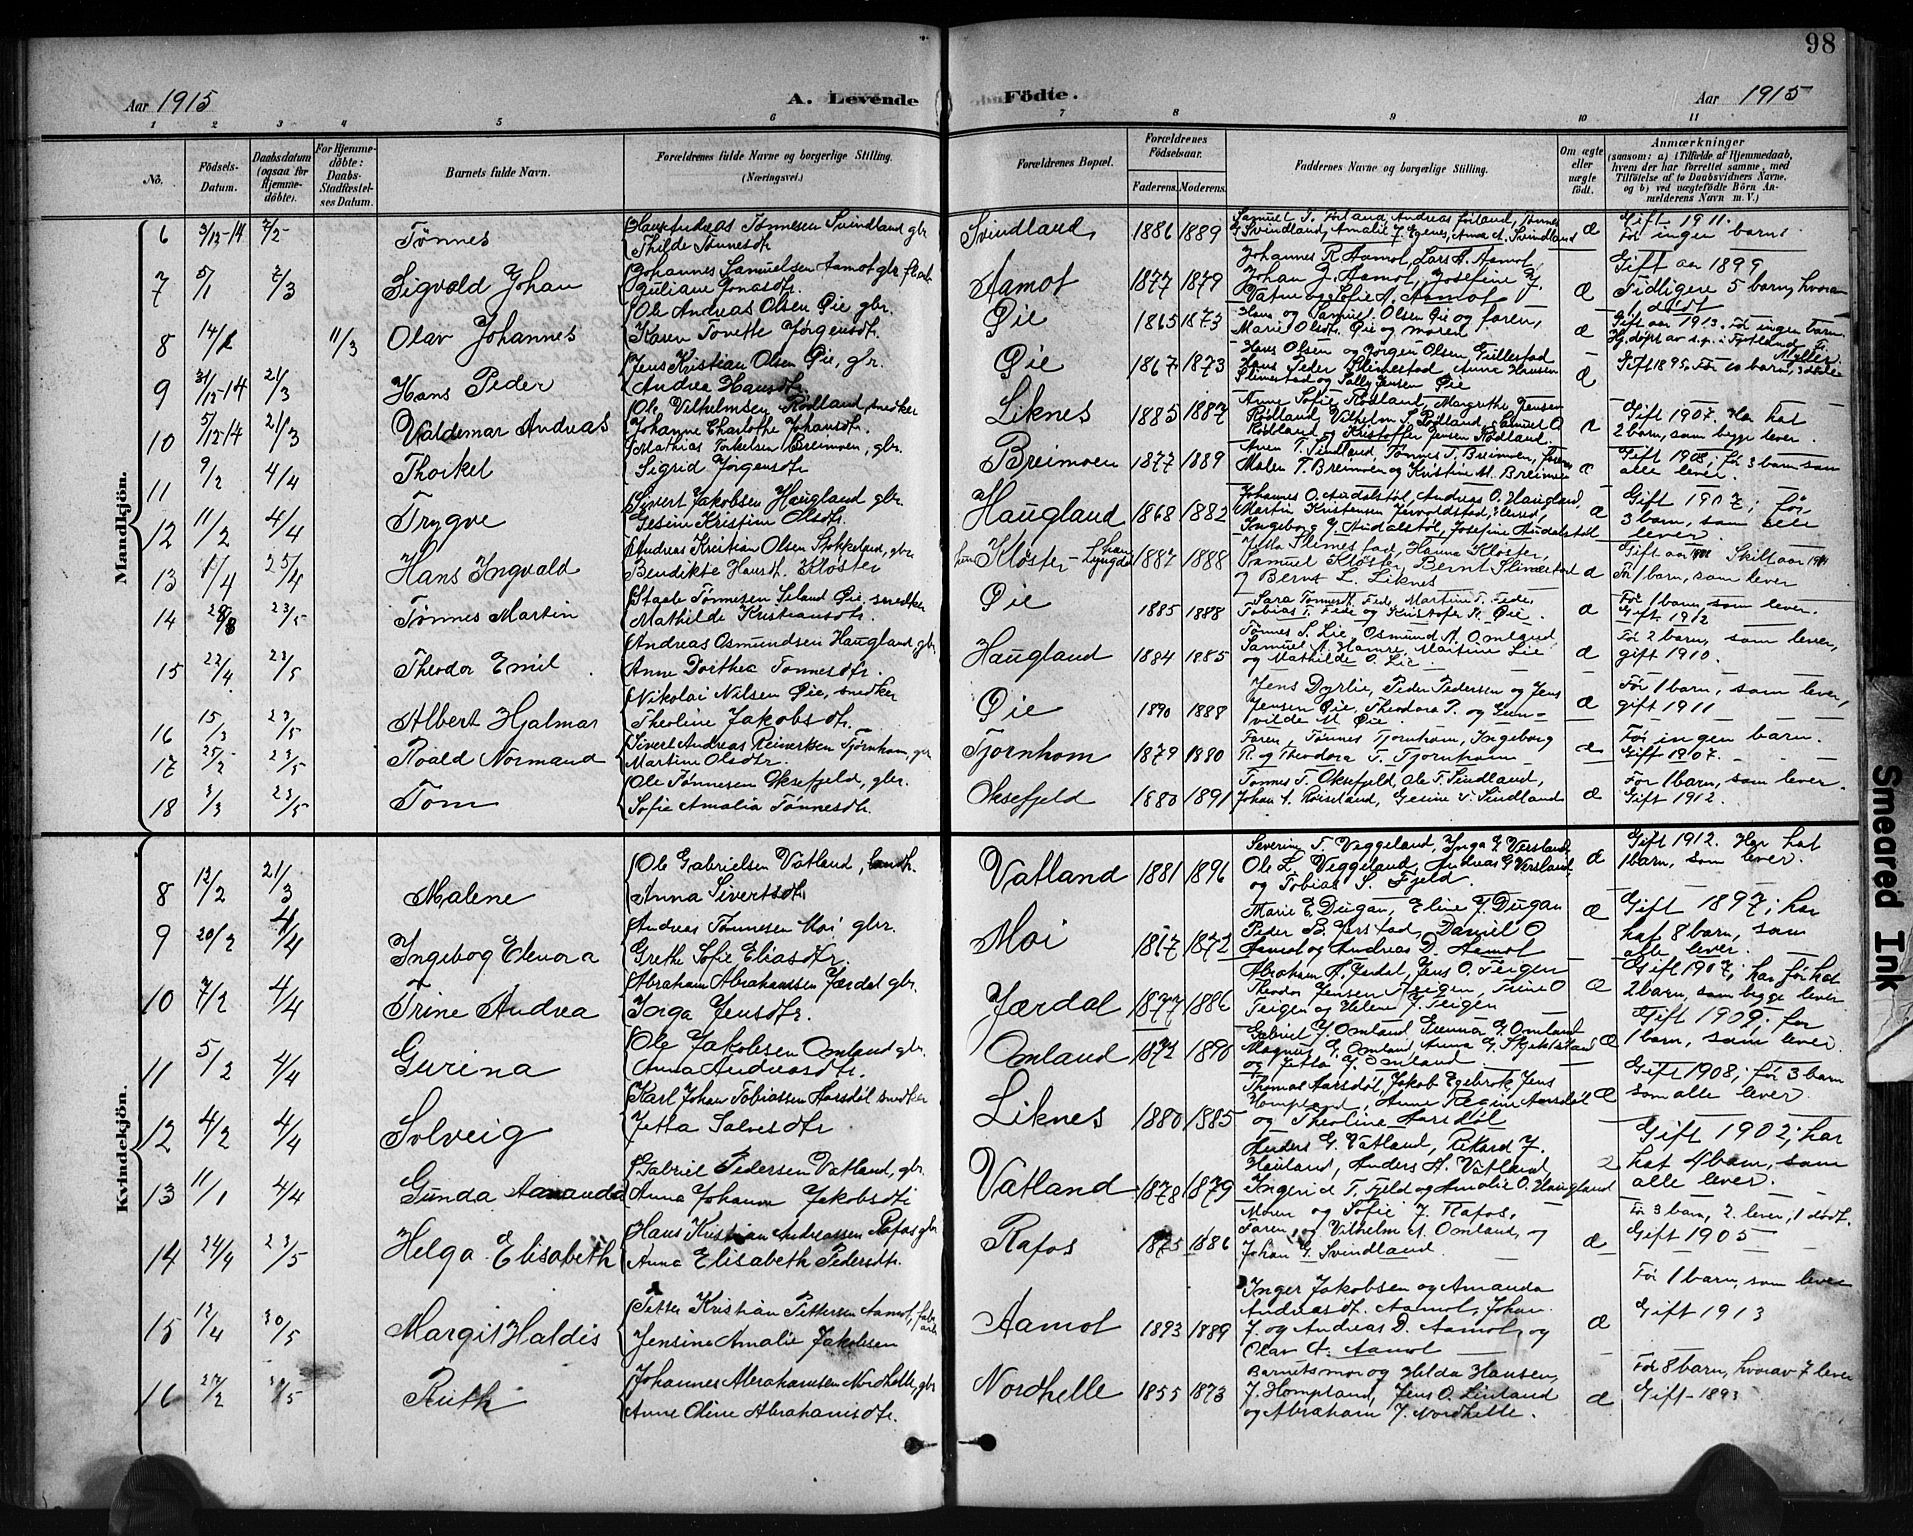 98
Aar 1915
A. Levende
Födte.
Aar 1915
1 2 3 4 5 6 7 8 9 10 11
No.
Födsels-
Datum.
Daabsdatum
(ogsaa for
Hjemme-
döbte).
For Hjemme-
döbte:
Daabs-
Stadfæstel-
ses Datum.
Barnets fulde Navn.
Forældrenes fulde Navne og borgerlige Stilling.
(Næringsvei.)
Forældrenes Bopæl.
Forældrenes
Födselsaar.
Faderens. Moderens.
Faddernes Navne og borgerlige Stilling.
Om ægte
eller
uægte
födt.
Anmærkninger
(saasom: a) i Tilfælde af Hjemmedaab,
hvem der har forrettet samme, med
Tilföielse af to Daabsvidners Navne,
og b) ved uægtefödte Börn An-
melderens Navn m. V.)
Mandkjön.
6 3/12-14 7/2 Tønnes
Hans Andreas Tønnesen Svindland gbr
Thilde Tønnesdtr
Svindland, 1886 1889
Samuel T. Förland, Andreas Förland, Tønnes
G Svindland, Amalie J. Egenes, Anna A. Svindland
æ
Gift 1911.
Før ingen barn.
7 5/1 7/3 Sigvald Johan
Johannes Samuelsen Aamot gbr
Juliane Jonasdtr.
Aamot 1877 1879
Johannes R Aamot, Lars A. Aamot,
Johan J. Aamot, Josefine J.
Vatne og Sofie A. Aamot
æ
Gift aar 1899
Tidligere 5 barn, hvorav
1 dødt
8 14/1 11/3 Olav Johannes
Ole Andreas Olsen Øie gbr.
Karen Tonette Jørgensdtr.
Øie 1865 1873
Hans og Samuel Olsen Øie og faren,
Marie Olsdtr. Øie og moren
æ
Gift aar 1913. Før ingen barn.
9 31/12-14 21/3 Hans Peder
Jens Kristian Olsen Øie, gbr.
Andrea Hansdtr.
Øie 1867 1873
Hans Olsen og Jørgen Olsen, Gullestad
Hans Peder Slimestad, Anne Hansen
Slimestad og Sally Jensen Øie
æ
Gift 1895. Før 10 barn, 3 døde
10 5/12-14 21/3 Valdemar Andreas
Ole Vilhelmsen Rødland, snedker
Johanne Charlothe Johansdtr.
Liknes 1885 1887
Anne Sofie Rødland, Margrethe Jensen
Rødland, Vilhelm L. Rødland, Samuel O.
Rødland og Kristoffer Jensen Rødland.
æ
Gift 1907. Har hat
2 barn, som begge lever.
11 9/2 4/4 Thorkel
Mathias Torkelsen Breimoen, gbr.
Sigrid Jørgensdtr
Breimoen 1877 1889
Malen T. Breimoen og Kristine M. Breimoen
æ
Gift 1908; før 3 barn som
alle lever.
12 11/2 4/4 Trygve
Sivert Jakobsen Haugland gbr.
Gesine Kristine Olsdtr.
Haugland 1868 1882
Johannes O. Audalstøl, Andreas O. Haugland,
Ingeborg G Audalstøl, Josefine Audalstøl
æ
Gift 1907; før
3 barn, som alle
lever.
13 11/4 25/4 Hans Ingvald
Andreas Kristian Olsen Stokkeland, gbr
Bendikte Hansdt. Kloster
hun Kloster - han Lyngdal 1887 1888
Jetta Slimestad, Hanna Kloster,
Samuel Kloster, Bernt Slimestad
og Bernt L. Liknes
æ
Før 1 barn, som lever
14 23/5 Tønnes Martin
Staale Tønnesen Seland Øie, snedker
Mathilde Kristiansdtr.
Øie 1885 1888
Sara Tønnesdt. Fede, Martine T. Fede,
Tobias T. Fede og Kristofer K. Øie.
æ
Før 1 barn, som lever.
Gift 1912
15 22/4 23/5 Theodor Emil
Andreas Osmundsen Haugland gbr
Anne Dorthea Tønnesdtr.
Haugland 1884 1885
Tønnes S. Lie, Osmund A. Omland,
Samuel A. Hamre, Martine Lie
og Mathilde O. Lie
æ
Før 2 barn, som lever,
gift 1910.
16 15/3 23/5 Albert Hjalmar
Nikolai Nilsen Øie, snedker
Theoline Jakobsdtr.
Øie 1890 1888
Jens Dyrlie, Peder Pedersen og Jens
Jensen Øie, Theodora P. og Gun-
vilde M. Øie
æ
Før 1 barn, som lever,
gift 1911
17 25/2 23/5 Roald Normand
Sivert Andreas Reinertsen Tjørnhom, gbr
Martine Olsdtr.
Tjørnhom 1879 1880
Faren, Tønnes Tjørnhom, Ingeborg
R. og Theodora T. Tjørnhom
æ
Før ingen barn.
Gift 1907.
18 3/3 23/5 Tom
Ole Tønnesen Oksefjeld, gbr.
Sofie Amalia Tønnesdtr.
Oksefjeld 1880 1891
Tønnes T. Oksefjeld, Ole T. Sindland,
Johan A. Røiseland, Gesine T. Sindland
æ
Før 1 barn, som lever.
Gift 1912.
Kvindekjön.
8 12/2 21/3 Malene
Ole Gabrielsen Vatland, landh.
Anna Sivertsdtr
Vatland 1881 1896
Severine T. Veggeland, Inga G. Versland,
Ole L. Veggeland, Andreas G Versland
og Tobias S. Fjeld.
æ
Gift 1912. Har hat
1 barn, som lever.
9 20/2 4/4 Ingebog Elenora
Andreas Tønnesen Moi gbr.
Grethe Sofie Eliasdtr.
Moi 1867 1872
Marie E. Dugan, Eline J. Dugan
Aamot og Andreas D. Aamot
æ
Gift 1897; har
hat 8 barn, som
alle lever.
10 7/2 4/4 Trine Andrea
Abraham Abrahamsen Jærdal gbr.
Inga Jensdtr.
Jærdal 1877 1886
Abraham A. Jærdal, Jens O. Teigen
Theodor Jensen Teigen, Trine O
Teigen og Helene J. Teigen
æ
Gift 1907; har før hat
2 barn, som begge lever
11 5/2 4/4 Gurina
Ole Jakobsen Omland gbr.
Anna Andreasdtr.
Omland 1872 1890
Gabriel J. Omland
Magnus G. Omland
og Jetta J. Omland
æ
Gift 1909; før
1 barn, som lever.
12 4/2 4/4 Solveig
Karl Johan Tobiassen Aarsdøl snedker
Jetta Salvesdtr
Liknes 1880 1885
Thomas Aarsdøl, Jakob Egebrok, Jens
Hompland, Anne Regine Aarsdøl
og Theoline Aarsdøl
æ
Gift 1908; før 3 barn
som alle lever.
13 11/1 4/4 Gunda Amanda
Gabriel Pedersen Vatland, gbr.
Anna Johanne Jakobsdt
Vatland 1878 1879
Anders G. Vatland, Rikard J.
Hauland, Anders A. Vatland,
Ingerid T. Fjeld og Amalie O. Haugland
æ
Gift 1902; har
hat 4 barn, som
alle lever.
14 24/4 23/5 Helga Elisabeth
Hans Kristian Andreassen Rafos gbr
Anna Elisabeth Pedersdtr.
Rafos 1875 1886
Moren og Sofie J. Rafos,
Faren og Vilhelm A. Omland, og
Johan G. Svindland
æ
Før 3 barn, 2 lever, 1 dødt.
Gift 1905
15 12/4 30/5 Margit Haldis
Petter Kristian Pettersen Aamot, fabr
arb
Jensine Amalie Jakobsen
Aamot 1893 1889
Inger Jakobsen og Amanda
Andreasdt. Aamot, Johan
J. og Andreas D. Aamot, og
Olav A. Aamot
æ
Før 1 barn, som lever
Gift 1913
16 27/2 30/5 Ruth
Johannes Abrahamsen Nordhelle, gbr
Anne Oline Abrahamsdtr.
Nordhelle 1855 1873
Barnets mor og Hilda Hansen,
J. Hompland, Jens O. Linland
og Abraham J. Nordhelle.
æ
Før 8 barn, hvorav 7 lever
Gift 1893
Smeared Ink